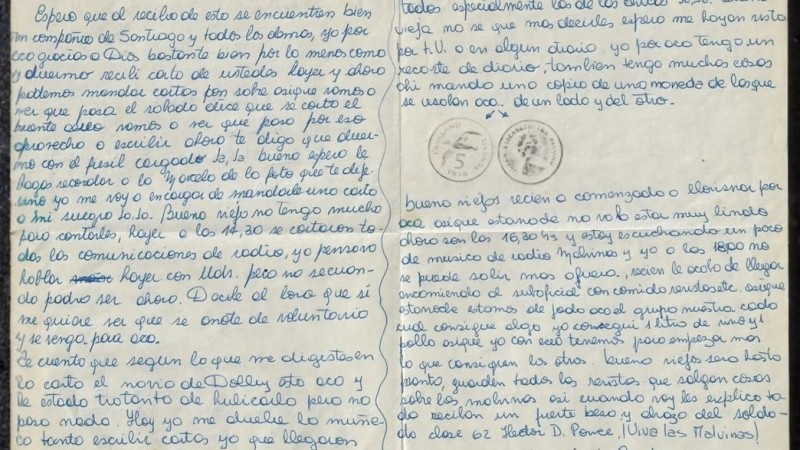 Espero que al recibo de esto se encuentren bien
en compañia de Santiago y todos los demas, yo por
aca gracias a Dios bastante bien por lo menos como
y duermo recibi carta de ustedes hayer y ahora
podemos mandar cartas por sobre asique vamos a
ver que pasa el sabado dice que se corto el
puente aereo vamos a ver que paso por eso
aprovecho a escribir ahora te digo que duer-
mo con el fusil cargado Ja, Ja bueno espero le
hagas recordar a la Marcela de la foto que te
yo me voy a encargar de mandarle una carta
a mi suegro Jo. Jo. Bueno viejo no tengo mucho
para contarles, hayer a las 14,30 se cortaron to-
das las comunicaciones de radio, yo pensava
hablar hayer con Uds. pero no se cuan-
do podra ser ahora. Decile al loro que si
me quiere ver que se anote de voluntario
y se venga para aca.
Te cuento que segun lo que me digeste en
la carta el novio de Dolly esta aca y
he estado tratando de hubicarlo pero no
paso nada. Hoy ya me duele la muñe-
ca tanto escribir cartas ya que llegaron
todas especialmente las de las chicas
vieja no se que mas decirles espero me hayan visto
por T.V. o en algun diario. yo por aca tengo un
recorte de diario, tambien tengo muchas cosas
ahi mando una copia de una moneda de las que
se usaban aca. de un lado y del otro.
5
bueno viejos recien a comenzado a lloviznar por
aca asique esta noche no va a estar muy linda
ahora son las 16,30 hs y estoy escuchando un poco
de musica de radio Malvinas y ya a las 18,00 no
se puede salir mas afuera, recien le acaba de llegar
encomienda al suboficial con comida revistas etc. asique
esta noche estamos de joda aca el grupo nuestro cada
cual consigue algo yo consegui 1 litro de vino y 1
pollo asique ya con eso tenemos para empezar mas
lo que consiguen los otros. bueno viejos sera hasta
pronto, guarden todas las revistas que salgan cosas
sobre las malvinas asi cuando voy les explico to
do reciban un fuerte beso y abrazo del solda-
do clase 62 Hector D. Ponce, ¡Viva las Malvinas!